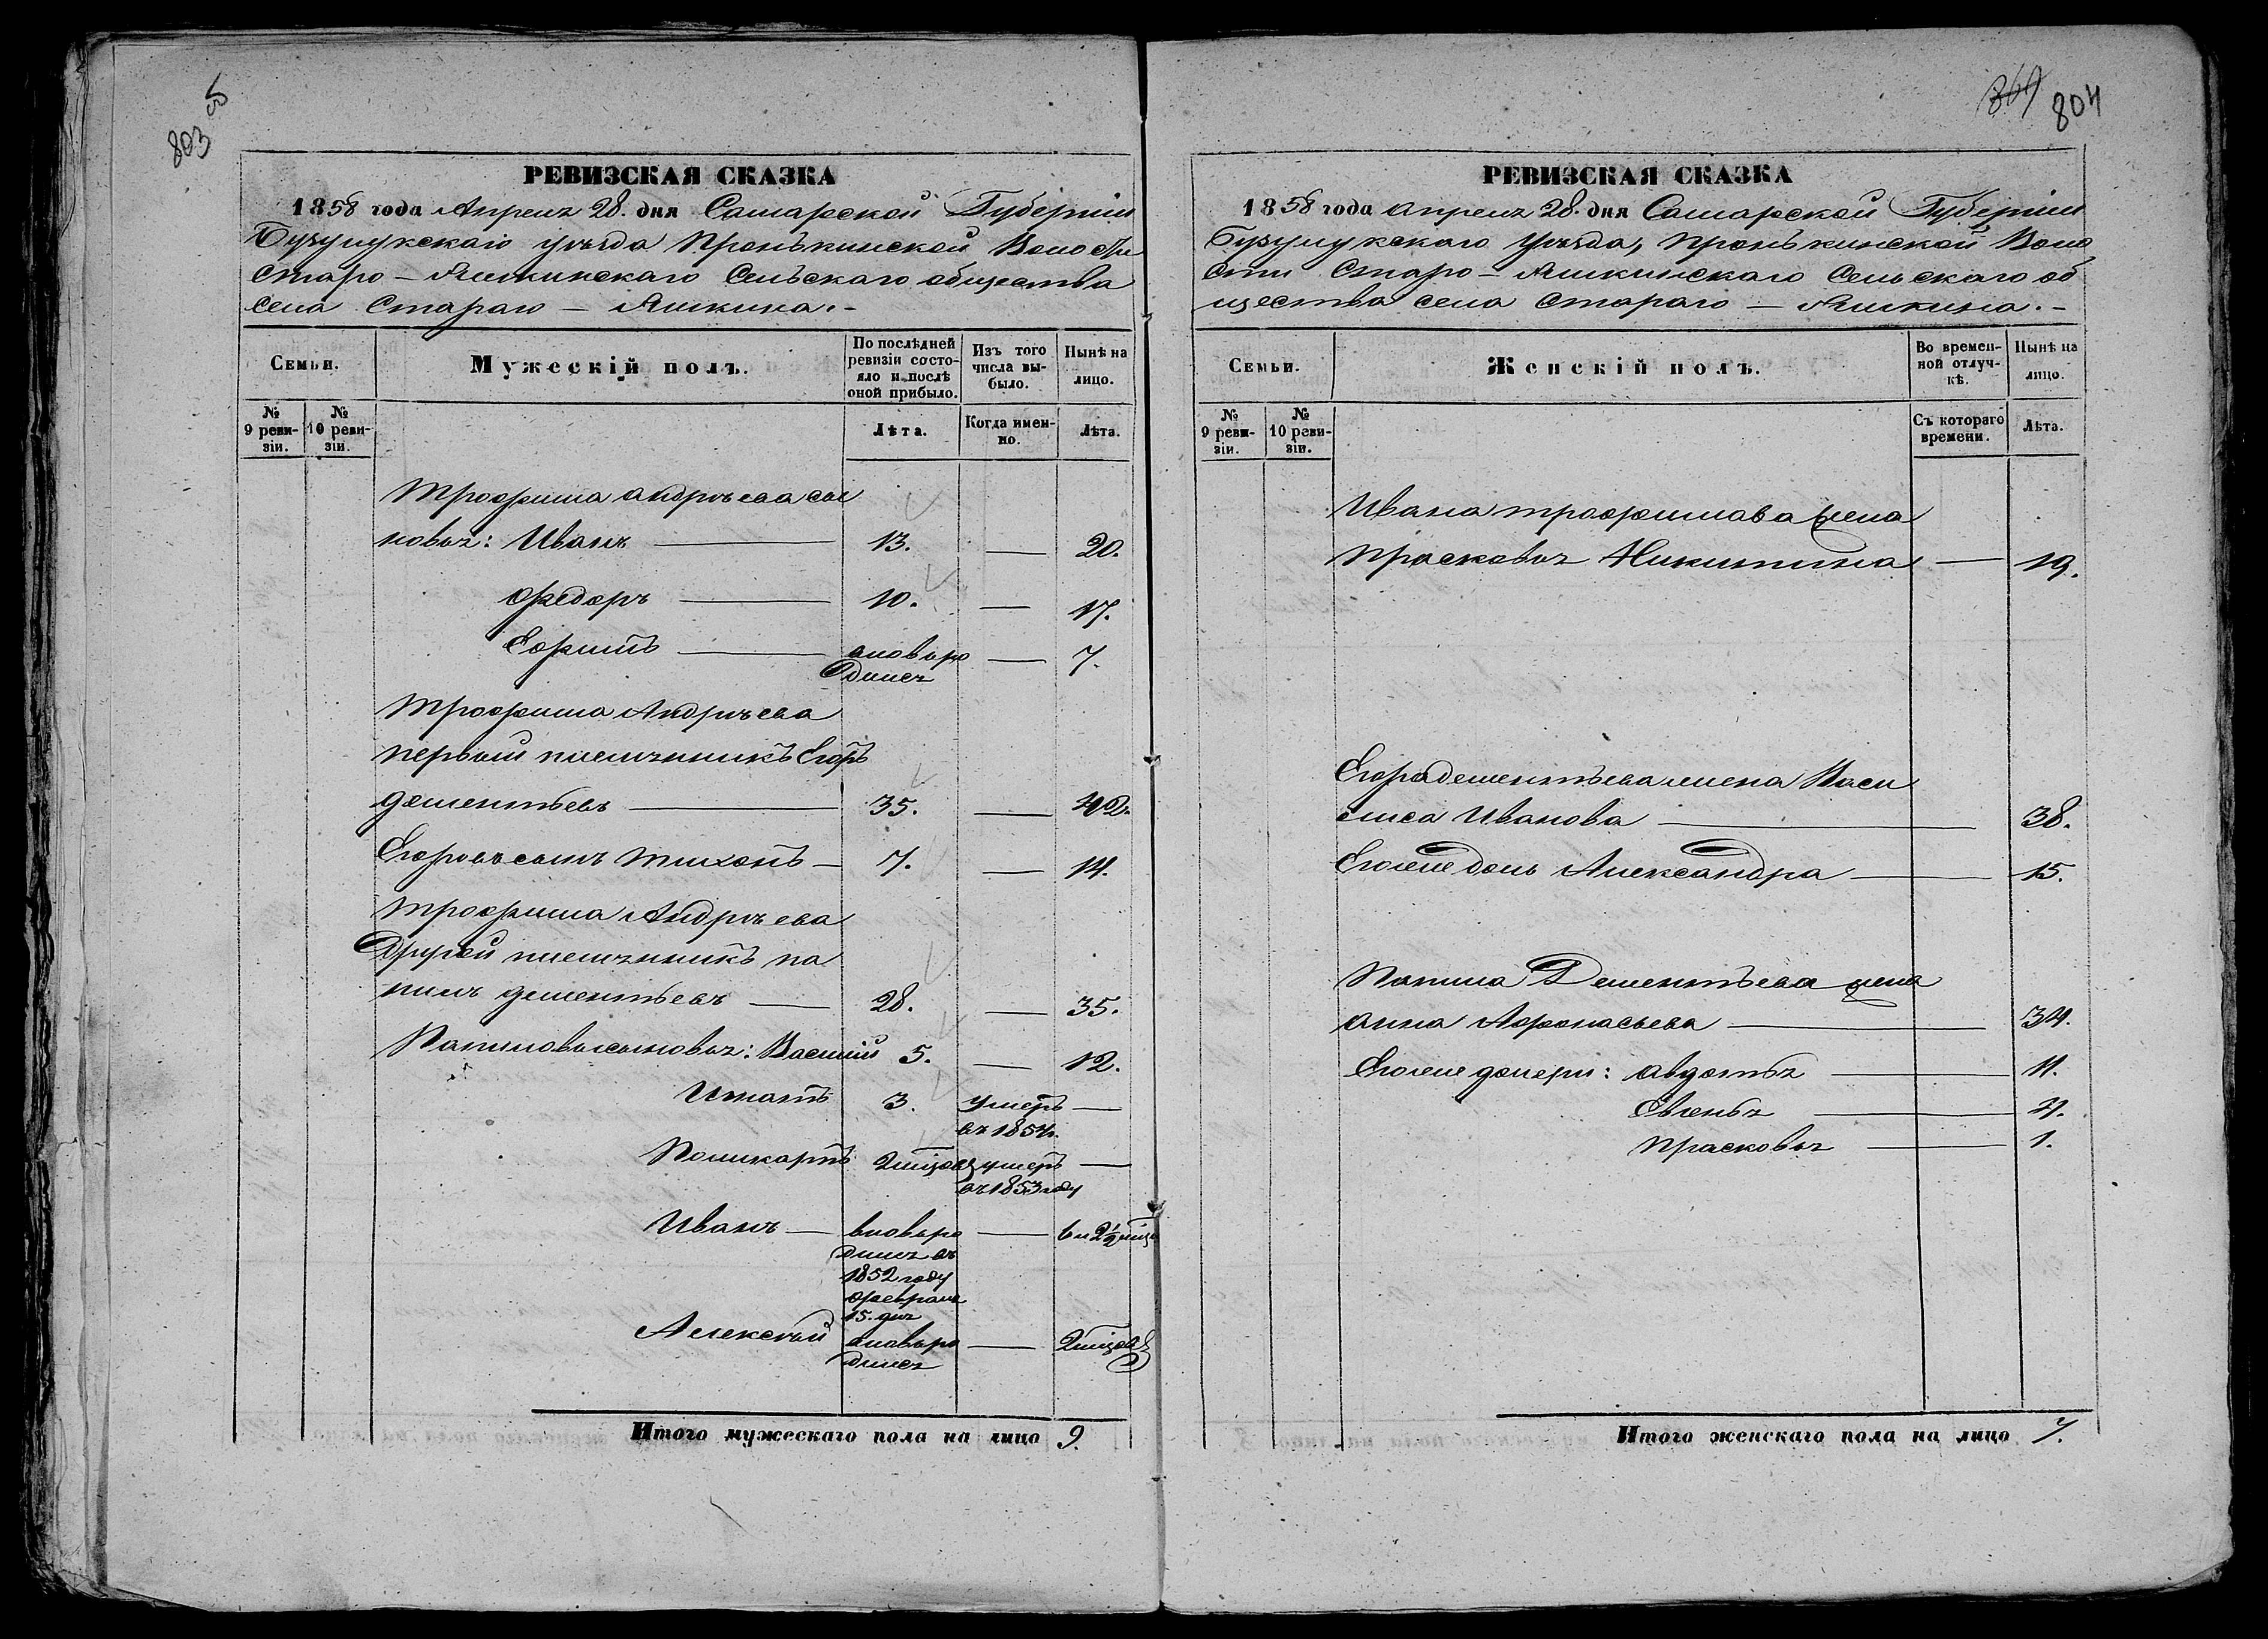 803
РЕВИЗСКАЯ СКАЗКА
1858 года Апреля 28. дня Самарской Губернiи
Бузулукскаго уѣзда Пронькинской Волости
Старо-Яшкинскаго Сельскаго общества
села Стараго-Яшкина.-
Семьи.
Мужескiй полъ.
По послѣдней ревизiи состояло и послѣ оной прибыло.
Изъ того числа выбыло.
Нынѣ на лицо.
№ 9 ревизiи.
№ 10 ревизiи.
Лѣта.
Когда именно.
Лѣта.
Трофима Андрѣева сы
новья: Иванъ — 13. — 20.
Федоръ — 10. — 17.
Ефимъ — вновьро — 7.
дился
Трофима Андрѣева
первый племянникъ Егоръ
дементьевъ — 35. — 42.
Егоровъ сынъ Тихонъ — 7. — 14.
Трофима Андрѣева
Другой племянникъ По
тапъ дементьевъ — 28. — 35.
сыновья: Василiй 5. — 12.
Игнатъ 3. умеръ —
въ 1854г.
Поликарпъ умеръ —
въ 1853 году
Иванъ — вновьро — 6 и 2½
дился въ
1852 году
февраля
15. дня
Алексѣй вновьро —
дился
Итого мужескаго пола на лицо 9.
804
РЕВИЗСКАЯ СКАЗКА
1858 года апреля 28. дня Самарской Губернiи
Бузулукскаго Уѣзда, Пронькинской Воло
сти Старо-Яшкинскаго Сельскаго об
щества села Стараго-Яшкина.-
Семьи.
Женскiй полъ.
Во временной отлучкѣ.
Нынѣ на лицо.
№ 9 ревизiи.
№ 10 ревизiи.
Съ котораго времени.
Лѣта.
Ивана трофимова жена
Прасковья Никитина — 19.
Егора дементьева жена Васи
лиса Иванова — 38.
Еголеѣ дочь Александра — 15.
Дементьева жена
анна Афонасьева — 34.
Еголеѣ дочери: авдотья — 11.
Евгенья — 4.
прасковья — 1.
Итого женскаго пола на лицо 7.